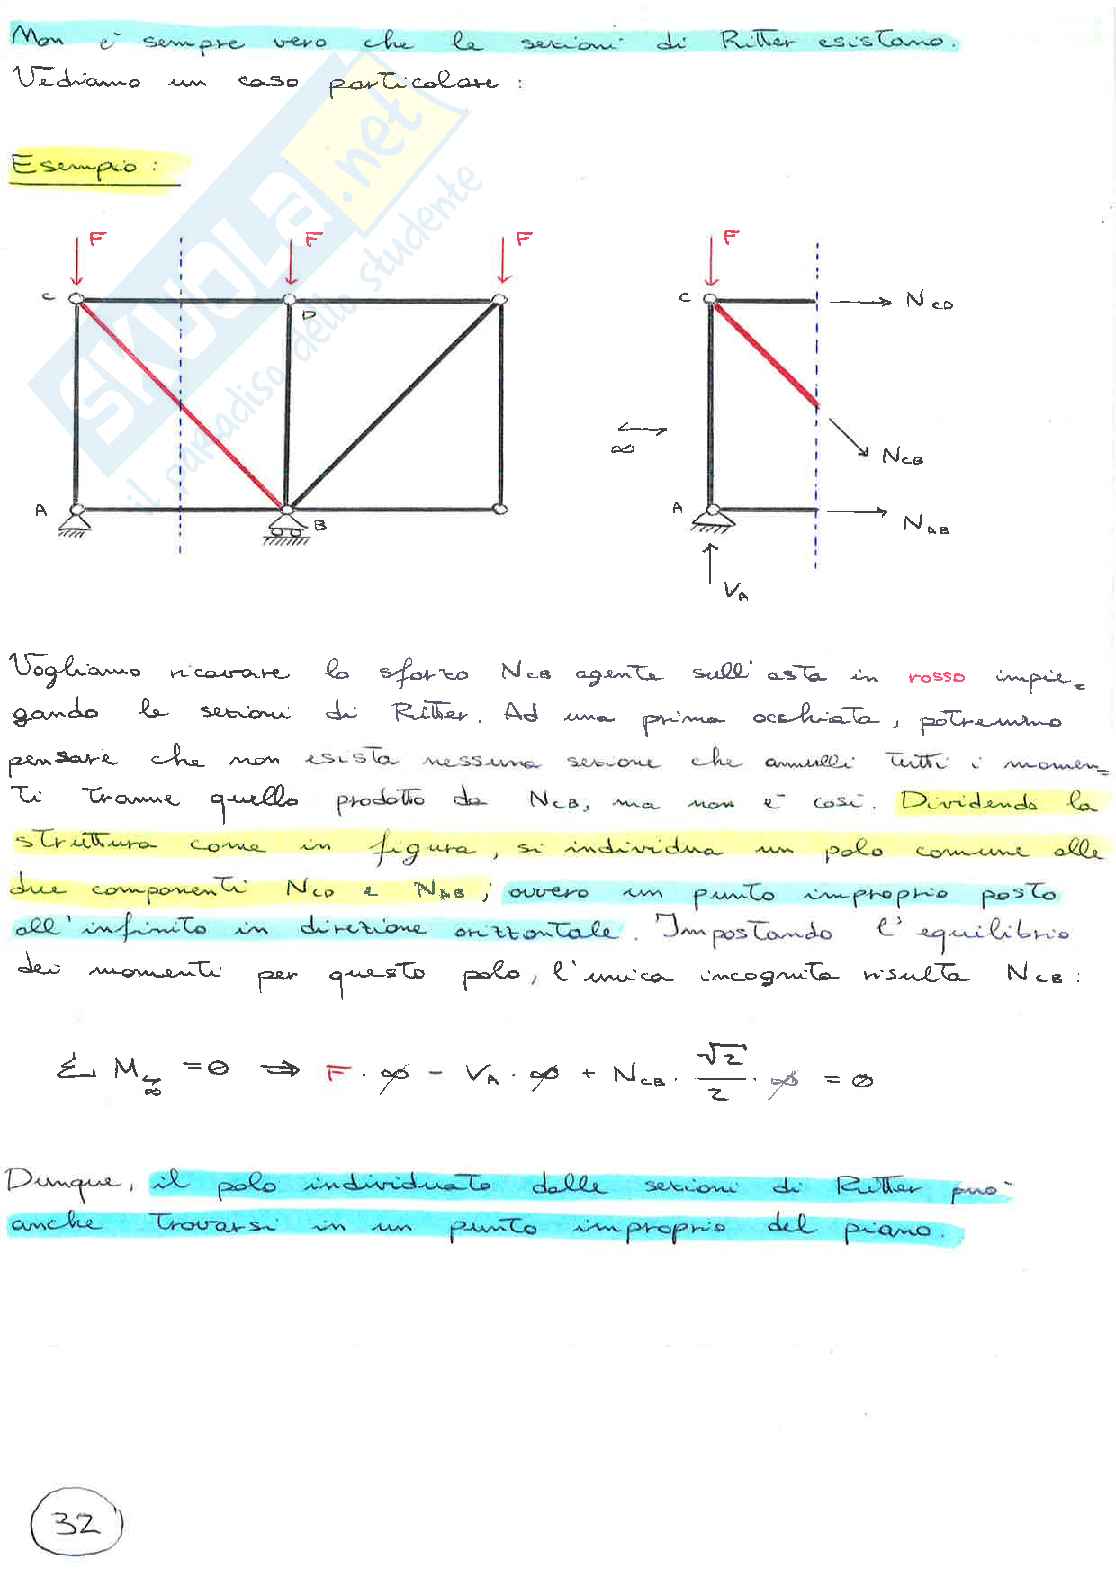 Non è sempre vero che le sezioni di Ritter esistano.
Vediamo un caso particolare:
Esempio:
SKUOLA.net
il paradiso dello studente
F F F F
C D C N_CD
∞ N_CB
A B A N_AB
V_A
Vogliamo ricavare lo sforzo N_CB agente sull'asta in rosso impie=
gando le sezioni di Ritter. Ad una prima occhiata, potremmo
pensare che non esista nessuna sezione che annulli tutti i momen=
ti tranne quello prodotto da N_CB, ma non è così. Dividendo la
struttura come in figura, si individua un polo comune alle
due componenti N_CD e N_AB; ovvero un punto improprio posto
all'infinito in direzione orizzontale. Impostando l'equilibrio
dei momenti per questo polo, l'unica incognita risulta N_CB:
Σ M_∞ = 0 ⇒ F · ∞ - V_A · ∞ + N_CB · √2/2 · ∞ = 0
Dunque, il polo individuato dalle sezioni di Ritter può
anche trovarsi in un punto improprio del piano.
32